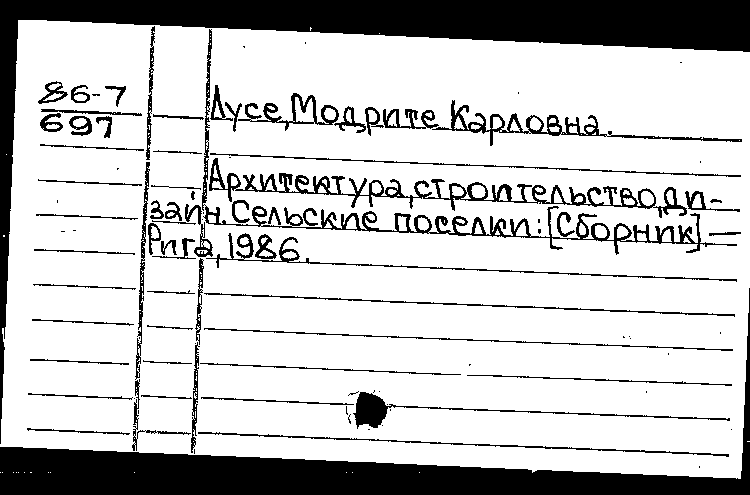 86-7
697
Лусе, Модрите Карловна.
Архитектура, строительство, ди-
зайн. Сельские поселки: [Сборник]. —
Рига, 1986.